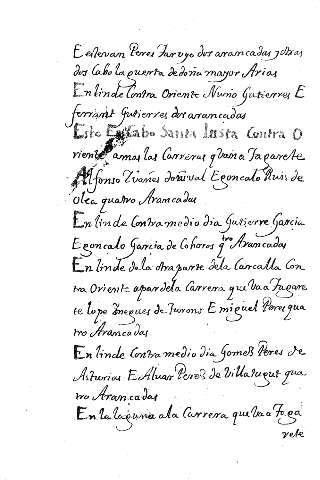 E estevan Peres Taruyo dos arancadas y otras
dos Cabo la puerta de doña mayor Arias
En linde Contra Oriente Nuño Gutierres E
ferrant Gutierres dos arancadas
Este E Cabo Santa Iusta Contra O
riente amas las Carreras q vana Tagarete
Alfonso Ivañes doxival E goncalo Ruis de
olea quatro Arancadas
En linde Contra medio dia Gutierre Garcia
E goncalo Garcia de Cohoros qtro Arancadas
En linde dela otra parte dela Carcalla Con
tra Oriente apar dela Carrera que va a Tagare
te lope Inegues de Turono E miguel Peres qua
tro Arancadas
En linde Contra medio dia Gomes Peres de
Asturias E Alvar Peres de Villasugut qua
tro Arancadas
En la laguna ala Carrera que va a Taga
rete